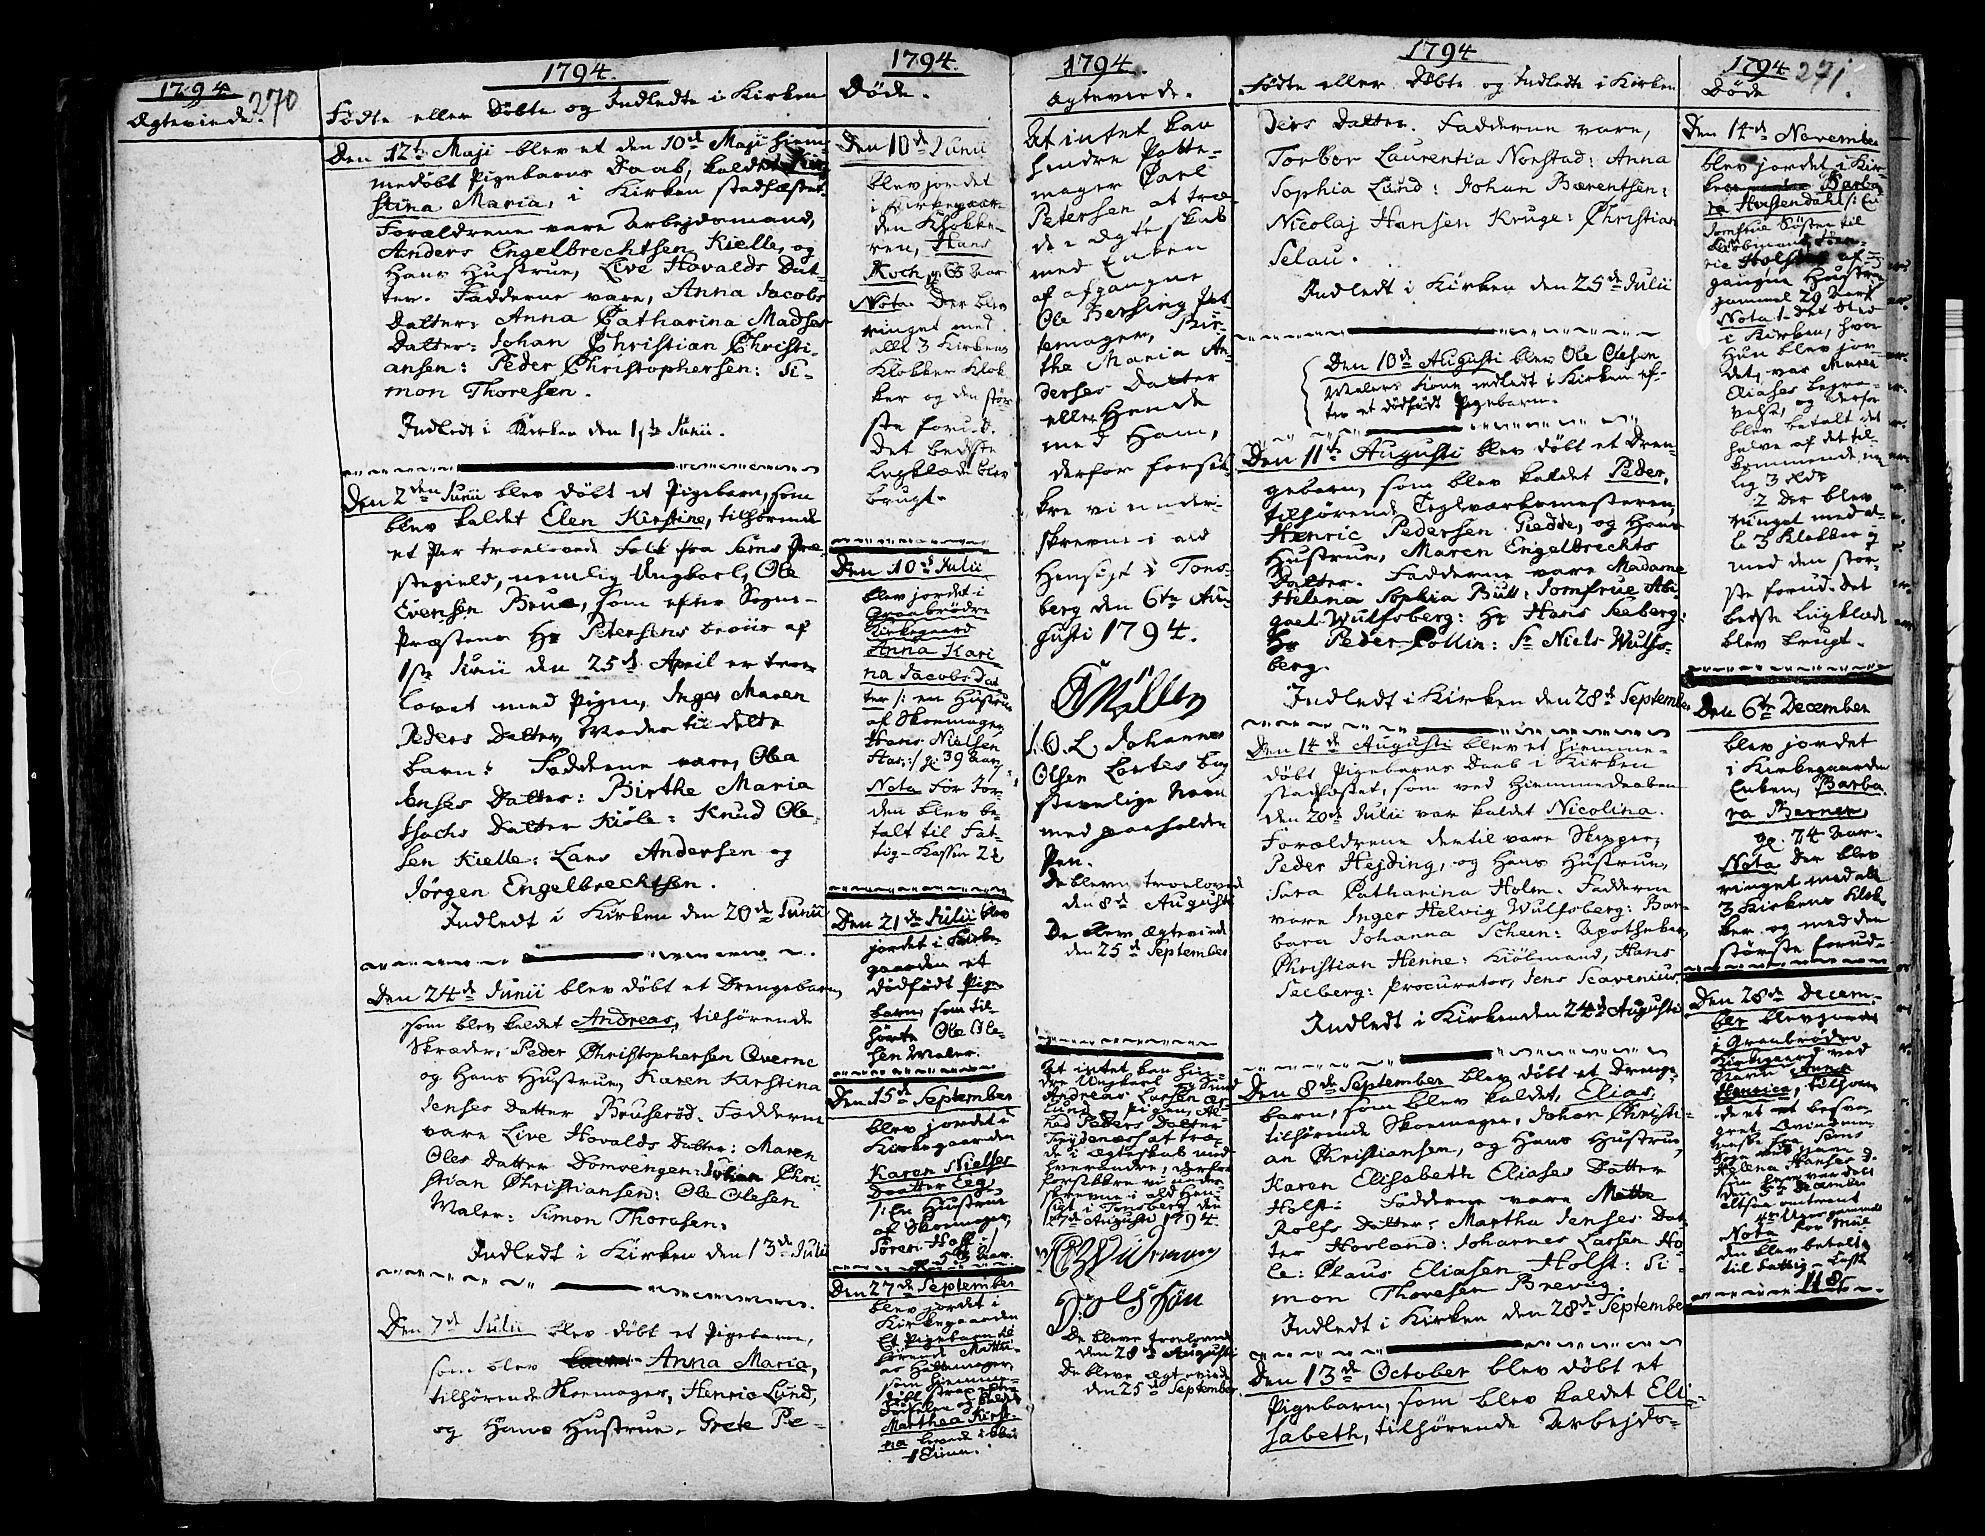 1794
Ægteviede.
270
1794.
Fødte eller Døbte og Indledte i Kirken
Den 12te Maji blev et den 10de Maji hiem-
medøbt Pigebarns Daab, kaldet
stina Maria, i Kirken stadfæstet.
Forældrene vare Arbejdsmand,
Anders Engelbrechtsen Kielle, og
Hans Hustrue, Live Hovalds Dat-
ter. Fadderne vare, Anna Jacobs
Datter: Anna Catharina Madses
Datter: Johan Christian Christi-
ansen: Peder Christophersen: Si-
mon Thoresen.
Indledt i Kirken den 1ste Junii.
Den 2den Junii blev døbt et Pigebarn, som
blev kaldet Elen Kirstine, tilhørende
et Par troelovede Folk fra Sems Præ-
stegield, nemlig Ungkarl, Ole
Evensen Brue, som efter Sogne-
Præstens Hr Petersens beviis af
1ste Junii den 25de April er troe-
lovet med Pigen, Inger Maren
Peders Datter, Moder til dette
barn: Fadderne vare, Olea
Jenses Datter: Birthe Maria
Isachs Datter Kiøle: Knud Ole-
sen Kielle: Lars Andersen og
Jørgen Engelbrechtsen.
Indledt i Kirken den 20de Junii
Den 24de Junii blev døbt et Drengebarn,
som blev kaldet Andreas, tilhørende
Skræder, Peder Christophersen Qverne
og Hans Hustrue, Karen Kirstina
Jenses Datter Bruserød. Fadderne
vare Live Hovalds Datter: Maren
Oles Datter Domvengen: Johan Chri-
stian Christiansen: Ole Olesen
Maler: Simon Thoresen.
Indledt i Kirken den 13de Julii
Den 7de Julii blev døbt et Pigebarn,
som blev Anna Maria,
tilhørende Skoemager, Henric Lund,
og Hans Hustrue, Grete Pe-
1794.
Døde.
Den 10de Junii
blev jordet
i Kirkegaar-
den Klokke-
ren, Hans
Koch, 68 Aar
Nota. Der blev
ringet med
alle 3 Kirkens
Klokker Klok
ker og den stør-
ste forud.
Det bedste
Liigklæde blev
brugt.
Den 10de Julii
blev jordet i
Graabrødre
Kirkegaard
Anna Kari-
na Jacobs Dat-
ter /: en Hustrue
af Skoemager,
Hans Nielsen
39 Aar.
Nota For Jor-
den blev be-
talt til Fat-
tig-Kassen
Den 21de Julii blev
jordet i Kirke-
gaarden et
dødfødt Pige-
barn, som til-
hørte Ole Ole-
sen Maler.
Den 15de September
blev jordet i
Kirkegaarden
Karen Nielses
Daatter Eeg
/: En Hustrue
af Skoemager,
Søren Hoff :/
56 Aar.
Den 27de September
blev jordet i
Kirkegaarden
Et Pigebarn til-
hørende Matti-
as Hattemager,
som hiemme-
døbt strax efter
Fødselen og kaldet
Marthea Kirst-
na levede ikkun
1 Time.
1794.
Ægteviede.
At intet kan
hindre Potte-
mager Carl
Petersen at træ-
de i Ægteskab
med Enken
af afgangne
Ole Bersing Pot-
temager, Bir-
the Maria An-
derses Datter
eller Hende
med Ham,
derfor forsik-
kre vi under-
skrevne i ald
Hensigt i Tons-
berg den 6te Au-
gusti 1794.
Møller
Johannes
Olsen Lortes bog-
stavelige Navn
med paaholden
Pen.
De bleve troelovede
den 8de Augusti
De bleve Ægteviede
den 25de September
At intet kan hin-
dre Ungkarl
Andreas Larsen
Lund, Pigen,
Peders Datter
at træ-
de i Ægteskab med
hverandre, derfor
forsikkre vi under-
skrevne i ald Hen-
sigt i Tonsberg den
27de Augusti 1794.
De bleve troelovede
den 28de Augusti
De bleve Ægteviede
den 25de September
1794
Fødte eller Døbte og Indledte i Kirken
ders Datter. Fadderne vare,
Torbor Laurentia Norstad: Anna
Sophia Lund: Johan Bærentsen:
Nicolaj Hansen Kruge: Christian
Selau.
Indledt i Kirken den 25de Julii
Den 10de Augusti blev Ole Olesen
Malers Kone indledt i Kirken ef-
ter et dødfødt Pigebarn.
Den 11te Augusti blev døbt et Dren-
gebarn, som blev kaldet Peder,
tilhørende Teglværksmesteren,
Henric Pedersen Giedde, og Hans
Hustrue, Maren Engelbrechts
Datter. Fadderne vare Madame
Helena Sophia Bull: Jomfrue Abi-
gael Wulfsberg: Hr Hans Seeberg:
Hr Peder Collin: Sr Niels Wulfs-
berg.
Indledt i Kirken den 28de September
Den 14de Augusti blev et hiemme-
døbt Pigebarns Daab i Kirken
stadfæstet, som ved Hiemmedaaben
den 20de Julii var kaldet Nicolina.
Forældrene dertil vare Skipper,
Peder Hejding, og Hans Hustrue,
Sara Catharina Holm. Fadderne
vare Inger Helvig Wulfsberg: Bar-
bara Johanna Scheen: Apotheker,
Christian Henne: Kiøbmand, Hans
Seeberg: Procurator, Jens Scavenius.
Indledt i Kirken den 24de Augusti
Den 8de September blev døbt et Drenge-
barn, som blev kaldet, Elias,
tilhørende Skoemager, Johan Christi-
an Christiansen, og Hans Hustrue,
Karen Elisabeth Eliases Datter
Holst. Fadderne vare Mette
Rolfs Datter: Martha Jenses Dat-
ter Hovland: Johannes Larsen Ho-
le: Claus Eliasen Holst: Si-
mon Thoresen Brevig.
Indledt i Kirken den 28de September
Den 13de October blev døbt et
Pigebarn, som blev kaldet Eli-
sabeth, tilhørende Arbejds-
1794
271.
Døde
Den 14de November
blev jordet i Kir-
ken Barba-
ra Hvistendahl /: En
Jomfrue Søster til
Kiøbmand
Holst af-
gangne Hustrue
gammel 29 Aar
Nota 1. Det Sted
i Kirken, hvor
Hun blev jor-
det, var Maren
Eliases begra-
velse, og derfor
blev betalt det
halve af det til-
kommende, nem-
lig 3 Rdr
2 Der blev
ringet med al-
le 3 Klokker og
med den stør-
ste forud. Det
bedste Liigklæde
blev brugt.
Den 6te December
blev jordet
i Kirkegaarden
Enken, Barba-
ra Berner,
74 Aar.
Nota Der blev
ringet med alle
3 Kirkens Klok-
ker og med den
største forud.
Den 28de Decem-
ber blev jordet
i Graabrødre
Kirkegaard ved
Navn Anna
Henrica, tilhø-
rende et besva-
gret Qvindem-
menske fra Sems
Sogn ved Navn
Helena Hanses D.
den 5te December
altsaa omtrent
4re Uger gammel
Nota For Mul-
den blev betalt
til Fattig-Kassen